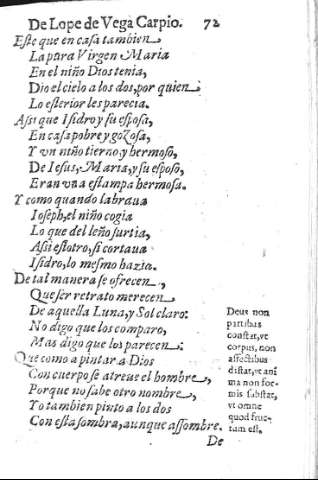 De Lope de Vega Carpio. 72
Este que en casa tambien
La pura Virgen Maria
En el niño Dios tenia,
Dio el cielo a los dos, por quien
Lo esterior les parecia.
Assi que Isidro y su esposa,
En casa pobre y gozosa,
Y vn niño tierno, y hermoso,
De Iesus, Maria, y su esposo,
Eran vna estampa hermosa.
Y como quando labraua
Ioseph, el niño cogia
Lo que del leño surtia,
Assi estotro, si cortaua
Isidro, lo mesmo hazia.
De tal manera se ofrecen,
Que ser retrato merecen
De aquella Luna, y Sol claro:
No digo que los comparo,
Mas digo que los parecen:
Que como a pintar a Dios
Con cuerpo se atreue el hombre,
Porque no sabe otro nombre,
Yo tambien pinto a los dos
Con esta sombra, aunque assombre.
De
Deus non
partibus
constat, vt
corpus, non
affectibus
distat, vt ani
ma non for-
mis substat,
vt omne
quod fruc-
tum est.